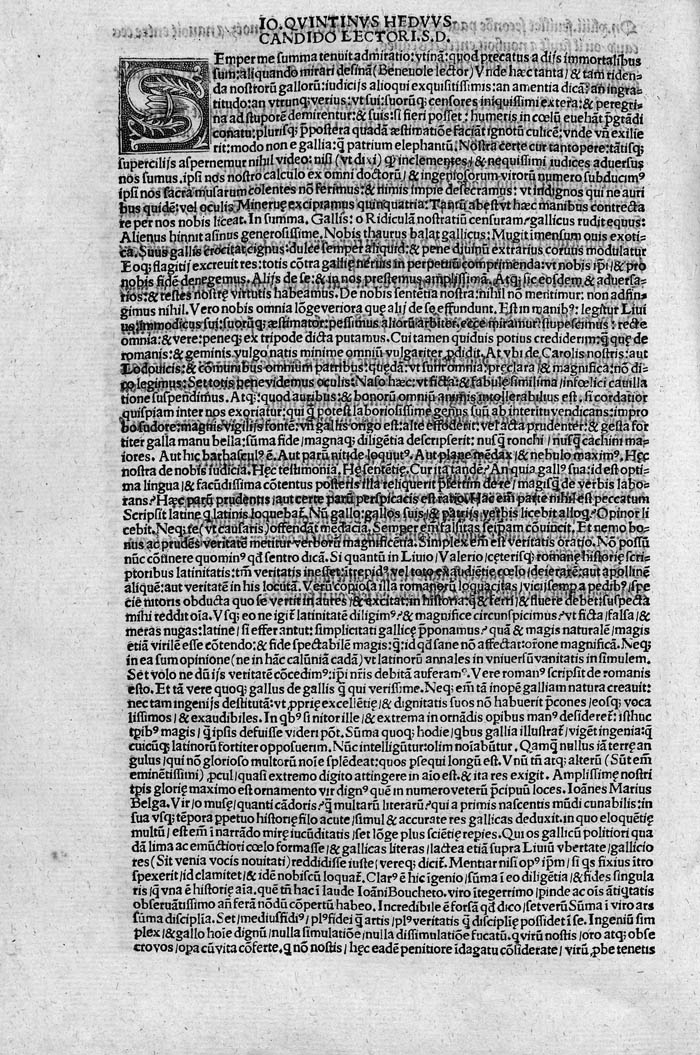 IO. QVINTINVS HEDVVS
CANDIDO LECTORI. S. D.
SEmper me summa tenuit admiratio: vtinā: quod precatus a dijs immortalibus
sum: aliquando mirari desinā (Beneuole lector) Vnde hæc tanta / & tam riden-
da nostrorū gallorū: iudicijs alioqui exquisitissimis: an amentia dicā? an ingra-
titudo: an vtrunq; verius: vt sui: suorūq; censores iniquissimi extera: & peregri-
na ad stuporē demirentur: & suis: si fieri posset: humeris in cœlū euehāt
conatu: plurisq; quadā æstimatiōe faciāt ignotū culicē: vnde vn exilie
rit: modo non e gallia: q̄ patrium elephantū. Nostra certe cur tantopere: tātisq;
supercilijs aspernemur nihil video: nisi (vt dixi) inclementes / & nequissimi iudices aduersus
nos sumus. ipsi nos nostro calculo ex omni doctorū / & ingeniosorum virorū numero subducimꝰ
ipsi nos sacra musarum colentes nō ferimus: & nimis impie desecramus: vt indignos qui ne auri
bus quidē: vel oculis Mineruę excipiamus quinquatria: Tantū abest vt hæc manibus contrecta
re per nos nobis liceat. In summa. Gallis: o Ridiculā nostratiū censuram: gallicus rudit equus:
Alienus hinnit asinus generosissime. Nobis thaurus balat gallicus: Mugit imensum ouis exoti-
ca. Suus gallis crocitat cignus: dulce semper aliquid: & pene diuinū extrarius coruus modulatur
Eoq; flagitij excreuit res: totis cōtra gallię neruis in perpetuū comprimenda: vt nobis ipsi / & pro
nobis fidē denegemus. Alijs de se: & in nos prestemus amplissimā. Atq; sic eosdem & aduersa-
rios: & testes nostrę virtutis habeamus. De nobis sententia nostra: nihil nō meritimur: non adfin-
gimus nihil. Vero nobis omnia lōge veriora que alij de se effundunt. Est in manibꝰ: legitur Liui
us: immodicus sui: suorūq; æstimator: pessimus aliorū arbiter. ecce miramur: stupescimus: recte
omnia: & vere: peneq; ex tripode dicta putamus. Cui tamen quiduis potius crediderim: q̄ que de
romanis: & geminis vulgo natis minime omniū vulgariter ꝓdidit. At vbi de Carolis nostris: aut
Lodouicis: & cōmunibus omnium patribus: quedā: vt sunt omnia: preclara / & magnifica: nō di-
co legimus: Set totis bene videmus oculis: Naso hæc: vt ficta: & fabule simillima / infœlici cauilla
tione suspendimus. Atq;: quod auribus: & bonorū omniū animis intollerabilius est, si cordatior
quispiam inter nos exoriatur: qui q̄ potest laboriosissime genus suū ab interitu vendicans: impro
bo sudore: magnis vigilijs fontē: vn gallis origo est: alte effoderit: vel acta prudenter: & gesta for
titer galla manu bella: sūma fide / magnaq; diligētia descripserit: nusq̄ ronchi / nusq̄ cachini ma-
iores. Aut hic barbasculꝰ ē. Aut parū nitide loquit̃. Aut plane mēdax / & nebulo maximꝰ. Hęc
nostra de nobis iudicia. Hęc testimonia. He sentētię. Cur ita tandē? An quia gallꝰ sua: id est opti-
ma lingua / & facūdissima cōtentus posteris illa reliquerit: de re / magisq̄ de verbis labo-
rans? Hæc parū prudentis / aut certe parū perspicacis est ratio. Hac em̄ parte nihil est peccatum
Scripsit latine q̄ latinis loquebat̃. Nū gallo: gallos suis / & patrijs verbis licebit alloq̄? Opinor li
cebit. Neq; te (vt causaris) offendāt mēdacia. Semper em̄ falsitas seipsam cōuincit. Et nemo bo-
nus ac prudēs veritatē metitur verborū magnificētia. Simplex em̄ est veritatis oratio. Nō possū
nūc cōtinere quominꝰ qd̄ sentio dicā. Si quantū in Liuio / Valerio / ceterisq; romanę historię scri-
ptoribus latinitatis: tm̄ veritatis inesset: ītrepidꝰ vel toto exaudiētie cœlo / deierarē: aut apollinē
aliquē: aut veritatē in his locutā. Verū copiosa illa romanorū loquacitas / vicissem̄ a pedibꝰ / spe
ciē nitoris obducta quo se vertit in aures / & excitat. in historia: q̄ & terri / & fluere debet: suspecta
mihi reddit oīa. Vsq; eo ne igit̃ latinitatē diligimꝰ? & magnifice circunspicimus? vt ficta / falsa / &
meras nugas: latine / si efferantur: simplicitati gallicę ꝓponamus? quā & magis naturalē / magis
etiā virilē esse cōtendo: & fide spectabilē magis: q̄: id qd̄ sane nō affectat: or̄one magnificā. Neq;
in ea sum opinione (ne in hāc calūniā cadā) vt latinorū annales in vniuersū vanitatis insimulem.
Set volo ne dū ijs veritatē cōcedimꝰ: ipsi nr̄is debitā auferamꝰ. Vere romanꝰ scripsit de romanis
esto. Et tā vere quoq; gallus de gallis q̄ qui verissime. Neq; em̄ tā inopē galliam natura creauit:
nec tam ingenijs destitutā: vt ꝓprię excellētię / & dignitatis suos nō habuerit p̄cones / eosq; voca
lissimos / & exaudibiles. In qbꝰ si nitor ille / & extrema in ornādis opibus manꝰ desideret̃: isthuc
tꝑibꝰ magis / q̄ ipsis defuisse videri pōt. Sūma quoq; hodie / qbus gallia illustrat̃ / vigēt ingenia: q̄
cuicūq; latinorū fortiter opposuerim. Nūc intelligūtur: olim noiabūtur. Qamq̄ nullus iā terrę an
gulus / qui nō glorioso multorū noīe splēdeat: quos ꝓsequi longū est. Vnū tn̄ atq; alterū (Sūt em̄
eminētissimi) ꝓcul / quasi extremo digito attingere in aīo est: & ita res exigit. Amplissimę nostri
tꝑis glorię maximo est ornamento vir dignꝰ quē in numero veterū p̄cipuū loces. Ioānes Marius
Belga. Vir / o musę / quanti cādoris? q̄ multarū literarū? qui a primis nascentis mūdi cunabilis: in
sua vsq; tēpora ppetuo historię filo acute / simul & accurate res gallicas deduxit. in quo eloquētię
multū / est em̄ ī narrādo mirę iucūditatis / set lōge plus sciētię repies. Qui os gallicū politiori qua
dā lima ac emūctiori cœlo formasse / & gallicas literas / lactea etiā supra Liuiū vbertate / gallicio
res (Sit venia vocis nouitati) reddidisse iuste / vereq; dicit̃. Mentiar nisi opꝰ ipm̄ / si qs fixius ītro
spexerit / id clamitet / & idē nobiscū loquat̃. Clarꝰ ē hic īgenio / sūma ī eo diligētia / & fides singula
ris / q̄ vna ē historię aīa. que tn̄ hac ī laude Ioāni Boucheto. viro ītegerrimo / pinde ac oīs ātiqtatis
obseruātissimo an ferā nōdū cōpertū habeo. Incredibile ē forsā qd̄ dico / set verū Sūma ī viro ars
sūma disciplīa. Set / mediusfidiꝰ / plꝰ fidei q̄ artis / plꝰ veritatis q̄ disciplię possidet ī se. Ingeniū sim
plex / & gallo hoīe dignū / nulla simulatiōe / nulla dissimulatiōe fucatū. q virū nostis / oro atq; obse
cro vos / opa cū vita cōferte. q nō nostis / hęc eadē penitiore īdagatu cōsiderate / virū ꝓbe tenetis